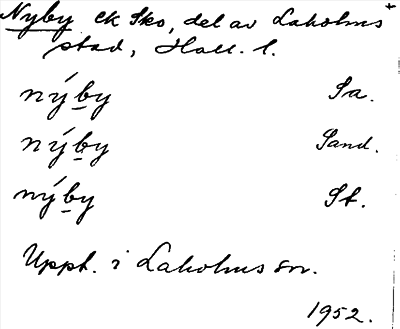 Nyby ek Sko, del av Laholms
stad, Hall. l.
nýby Sa.
nýby Sand.
nýby St.
Uppt. i Laholms sn.
1952.